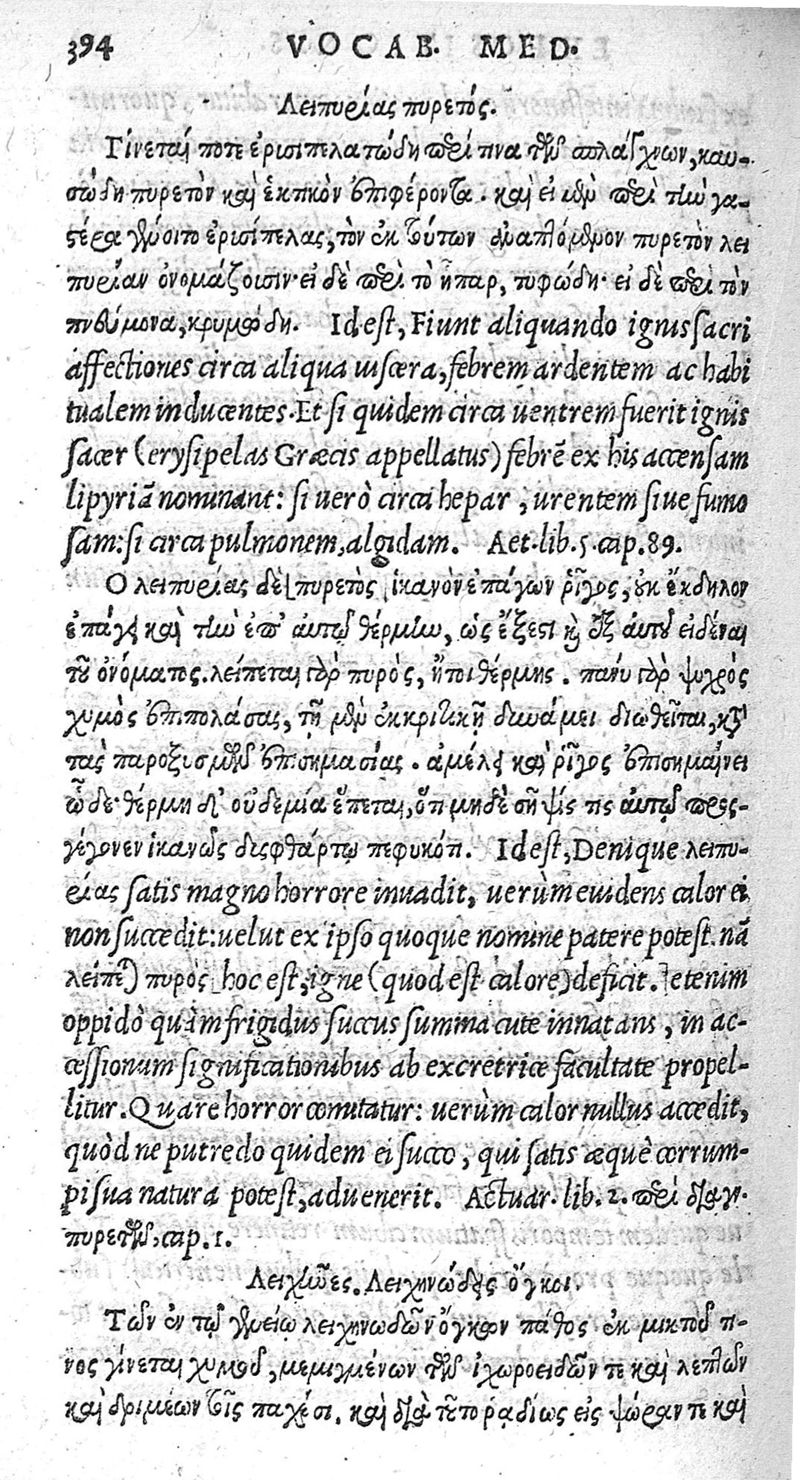 394 VOCAB. MED.
Λειπυρίας πυρετός.
Γίνεταί ποτε ἐρισιπελατώδη περί τινα τῶν σπλάγχνων, καυ-
σώδη πυρετὸν καὶ ἑκτικὸν ἐπιφέροντα. καὶ εἰ μὲν περὶ τὴν γα-
στέρα γένοιτο ἐρισίπελας, τὸν ἐκ τούτων ἀναπτόμενον πυρετὸν λει
πυρίαν ὀνομάζοισιν· εἰ δὲ περὶ τὸ ἧπαρ, τυφώδη· εἰ δὲ περὶ τὸν
πνεύμονα, κρυμώδη. Id est, Fiunt aliquando ignis sacri
affectiones circa aliqua uiscera, febrem ardentem ac habi
tualem inducentes. Et si quidem circa uentrem fuerit ignis
sacer (erysipelas Græcis appellatus) febrē ex his accensam
lipyriā nominant: si uerò circa hepar, urentem siue fumo
sam: si circa pulmonem, algidam. Aet. lib. 5. cap. 89.
Ο λειπυρίας δὲ πυρετὸς ἱκανὸν ἐπάγων ῥῖγος, οὐκ ἔκδηλον
ἐπάγει καὶ τὴν ἐπ' αὐτῷ θέρμην, ὡς ἔξεστι καὶ ἐξ αὐτοῦ εἰδέναι
τοῦ ὀνόματος. λείπεται γὰρ πυρὸς, ἤτοι θέρμης. πάνυ γὰρ ψυχρὸς
χυμὸς ἐπιπολάσας, τῇ μὲν ἐκκριτικῇ δυνάμει διωθεῖται, κατὰ
τὰς παροξισμῶν ἐπισημασίας. ἀμέλει καὶ ῥῖγος ἐπισημαίνει
ὧδε· θέρμη δ' οὐδεμία ἕπεται, ὅτι μηδὲ σῆψίς τις αὐτῷ προς-
γέγονεν ἱκανῶς δυσφθάρτῳ πεφυκότι. Id est, Denique λειπυ-
ρίας satis magno horrore inuadit, uerùm euidens calor ei
non succedit: uelut ex ipso quoque nomine patere potest. nā
λείπεται πυρός hoc est, igne (quod est calore) deficit. etenim
oppidò quàm frigidus succus summa cute innatans, in ac-
cessionum significationibus ab excretrice facultate propel-
litur. Quare horror comitatur: uerùm calor nullus accedit,
quòd ne putredo quidem ei succo, qui satis æquè corrum-
pi sua natura potest, aduenerit. Actuar. lib. 2. περὶ διαγν.
πυρετῶν. cap. 1.
Λειχῆνες. Λειχηνώδεις ὄγκοι.
Τῶν ἐν τῷ γενείῳ λειχηνωδῶν ὄγκων πάθος ἐκ μικτοῦ τι-
νος γίνεται χυμοῦ, μεμιγμένων τῶν ἰχωροειδῶν τε καὶ λεπτῶν
καὶ δριμέων τοῖς παχέσι. καὶ διὰ τοῦτο ραδίως εἰς ψώραν τε καὶ